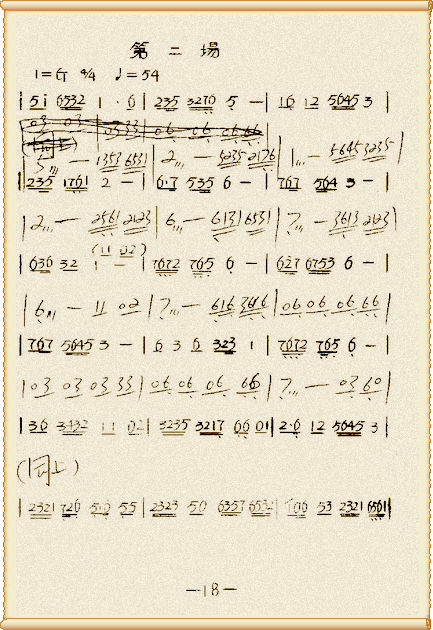 第二場
1=G 4/4 ♩=54
| 5i 6532 1 · 6 | 235 3276 5 – | 16 12 5645 3 |
5 – 1353 6531 | 2 – 5235 2176 | 1 – 5645 3235 |
| 235 1761 2 – | 6·7 535 6 – | 767 564 3 – |
| 2 – 2561 2123 | 6 – 6131 6531 | 7 – 3613 2123 |
(11 02)
| 636 32 1 – | 7672 765 6 – | 627 6753 6 – |
| 6 – 11 02 | 7 – 616 3616 | 06 06 06 66 |
| 767 5645 3 – | 6 3 6 323 1 | 7672 765 6 – |
| 03 03 03 33 | 06 06 06 66 | 7 – 03 60 |
| 36 3432 11 02 | 3235 3217 66 01 | 2·6 12 5645 3 |
(同上)
| 2321 726 5·6 55 | 2323 50 6357 6532 | 166 53 2321 6561 |
–18–